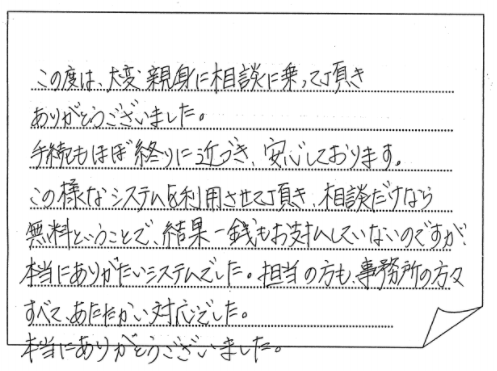 この度は、大変親身に相談に乗って頂き
ありがとうございました。
手続きもほぼ終りに近づき、安心しております。
この様なシステムを利用させて頂き、相談だけなら
無料ということで、結果一銭もお支払していないのですが、
本当にありがたいシステムでした。担当の方も、事務所の方々
すべて、あたたかい対応でした。
本当にありがとうございました。